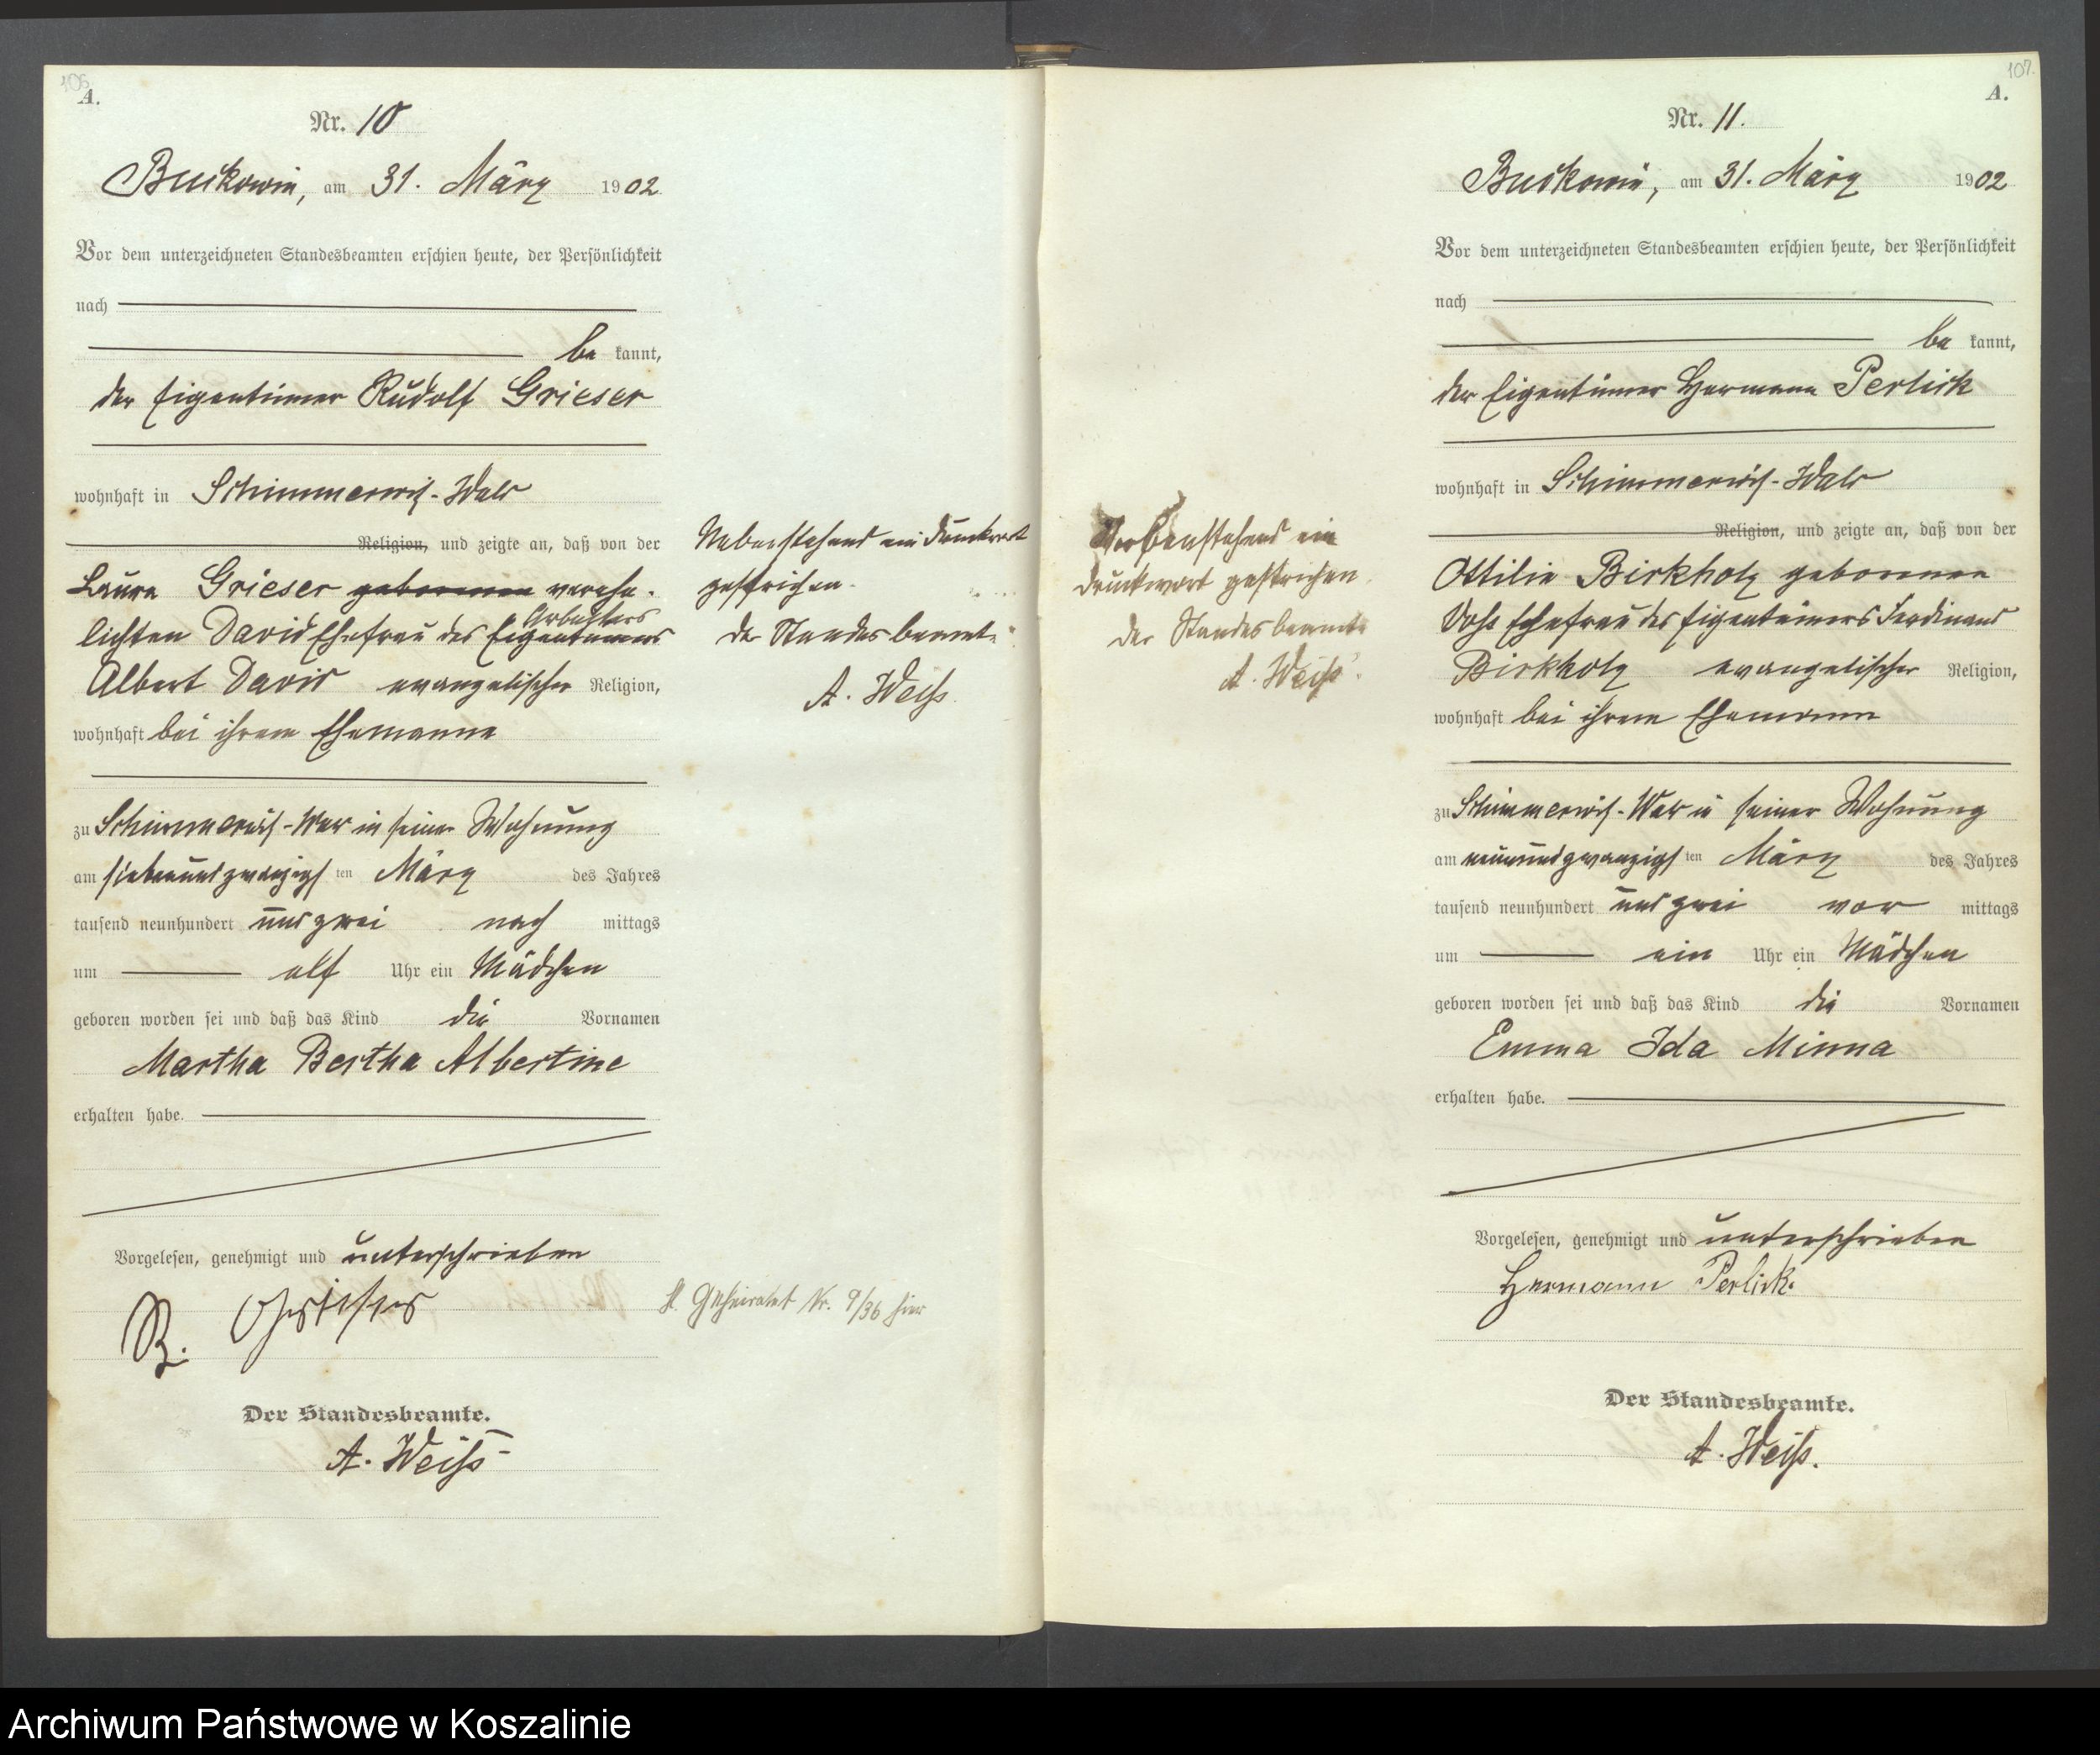 106
A.
Nr. 10
Buckowin, am 31. März 1902
Vor dem unterzeichneten Standesbeamten erschien heute, der Persönlichkeit
nach
be kannt,
der Eigentümer Rudolf Grieser
wohnhaft in Schimmerwitz-Wald
Religion, und zeigte an, daß von der
Laura Grieser geborenen verehe-
Arbeiters
lichten David Ehefrau des Eigentümers
Albert David evangelischer Religion,
wohnhaft bei ihrem Ehemanne
zu Schimmerwitz-Wald in seiner Wohnung
am siebenundzwanzigsten März des Jahres
tausend neunhundert und zwei nach mittags
um elf Uhr ein Mädchen
geboren worden sei und daß das Kind die Vornamen
Martha Bertha Albertine
erhalten habe.
Vorgelesen, genehmigt und unterschrieben
R. Grieser
Der Standesbeamte.
A. Weiß
Nebenstehend ein Druckwort
gestrichen.
Der Standesbeamte
A. Weiß
H. Geheiratet Nr. 9/36 hier
107.
A.
Nr. 11.
Buckowin, am 31. März 1902
Vor dem unterzeichneten Standesbeamten erschien heute, der Persönlichkeit
nach
be kannt,
der Eigentümer Hermann Perlick
wohnhaft in Schimmerwitz-Wald
Religion, und zeigte an, daß von der
Ottilie Birkholz geborenen
Voß Ehefrau des Eigentümers Ferdinand
Birkholz evangelischer Religion,
wohnhaft bei ihrem Ehemann
zu Schimmerwitz-Wald in seiner Wohnung
am neunundzwanzigsten März des Jahres
tausend neunhundert und zwei vor mittags
um ein Uhr ein Mädchen
geboren worden sei und daß das Kind die Vornamen
Emma Ida Minna
erhalten habe.
Vorgelesen, genehmigt und unterschrieben
Hermann Perlick.
Der Standesbeamte.
A. Weiß.
ein
Druckwort gestrichen.
Der Standesbeamte
A. Weiß.
Archiwum Państwowe w Koszalinie